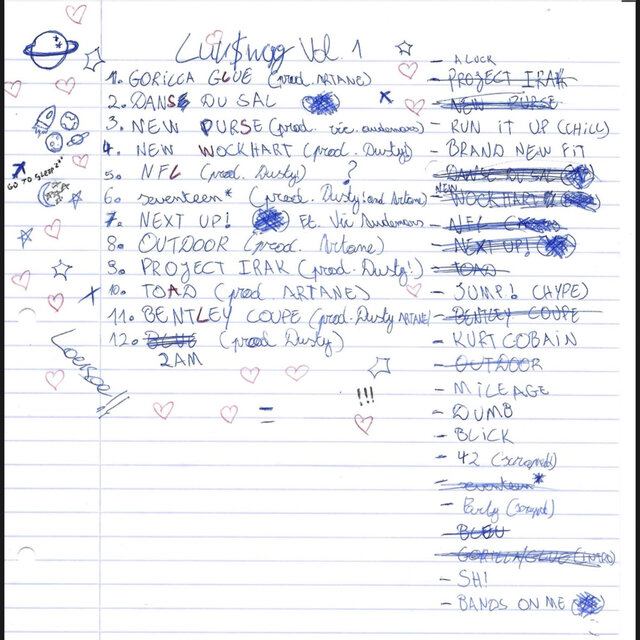 Luv$wag Vol. 1
1. GORILLA GLUE (prod. ARTANE)
2. DANSE DU SAL
3. NEW PURSE (prod. vic. audemars)
4. NEW WOCKHART (prod. Dusty)
5. NFL (prod. Dusty) ?
6. seventeen* (prod. Dusty! and Artane)
7. NEXT UP! Ft. Vic Audemars
8. OUTDOOR (prod. Artane)
9. PROJECT IRAK (prod. Dusty!)
10. TOAD (prod. ARTANE)
11. BENTLEY COUPE (prod. Dusty ARTANE)
12. BLUE (prod Dusty)
2AM
GO TO SLEEP
!!!
- A LOCK
- PROJECT IRAK
- NEW PURSE
- RUN IT UP (CHILL)
- BRAND NEW FIT
- DANSE DU SAL
NEW
- WOCKHART
- NFL
- NEXT UP!
- TOAD
- JUMP! (HYPE)
- BENTLEY COUPE
- KURT COBAIN
- OUTDOOR
- MILEAGE
- DUMB
- BLICK
- 42
- seventeen*
-
- BLEU
- GORILLA GLUE (INTRO)
- SH!
- BANDS ON ME